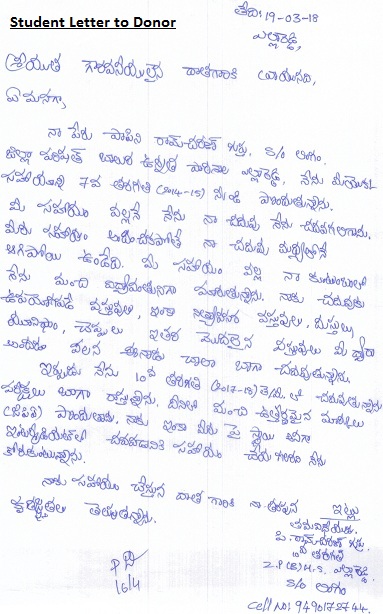 Student Letter to Donor
తేది: 19-03-18
ఎల్లారెడ్డి,
శ్రీయుత గౌరవనీయులైన దాతగారికి వ్రాయునది,
ఏమనగా,
నా పేరు పాపిని రామ్ చరణ్ కుర్రు. S/o లింగం.
జిల్లా పరిషత్ బాలుర ఉన్నత పాఠశాల ఎల్లారెడ్డి, నేను మీయొక్క
సహాయాన్ని 7వ తరగతి (2014-15) నుండి పొందుతున్నాను.
మీ సహాయం వల్లనే నేను నా చదువు నేను చదవగలిగాను.
మీరు సహాయం అందించకపోతే నా చదువు మధ్యలోనే
ఆగిపోయి ఉండేది. మీ సహాయం వల్ల నా కుటుంబంలో
నేను మంచి విద్యావంతునిగా ఎదుగుతున్నాను. నాకు చదువుకు
ఉపయోగపడే వస్తువులు, ఇంకా నిత్యావసర వస్తువులు, దుస్తులు,
యూనిఫాం, చెప్పులు ఇతర మొదలైన వస్తువులు మీ ద్వారా
అందడం వలన ఈనాడు చాలా బాగా చదువుతున్నాను.
ఇప్పుడు నేను 10వ తరగతి (2017-18) లో చదువుతున్నాను.
పరీక్షలు బాగా రాస్తున్నాను. దీనిలో మంచి ఉత్తీర్ణమైన మార్కులు
(జిపిఎ) పొందుతాను. నాకు ఇంకా మీరు పై స్థాయి అనగా
ఇంటర్మీడియట్‌లో చదవడానికి సహాయం చేయగలరని నేను
కోరుకుంటున్నాను.
నాకు సహాయం చేస్తున్న దాత గారికి నా తరపున
కృతజ్ఞతలు తెలుపుతున్నాను.
ఇట్లు
తమవిధేయుడు.
పి. రామ్ చరణ్ కుర్రు,
10వ తరగతి
Z.P(B)H.S. ఎల్లారెడ్డి
S/o లింగం
16/4
Cell No: 9490172744.